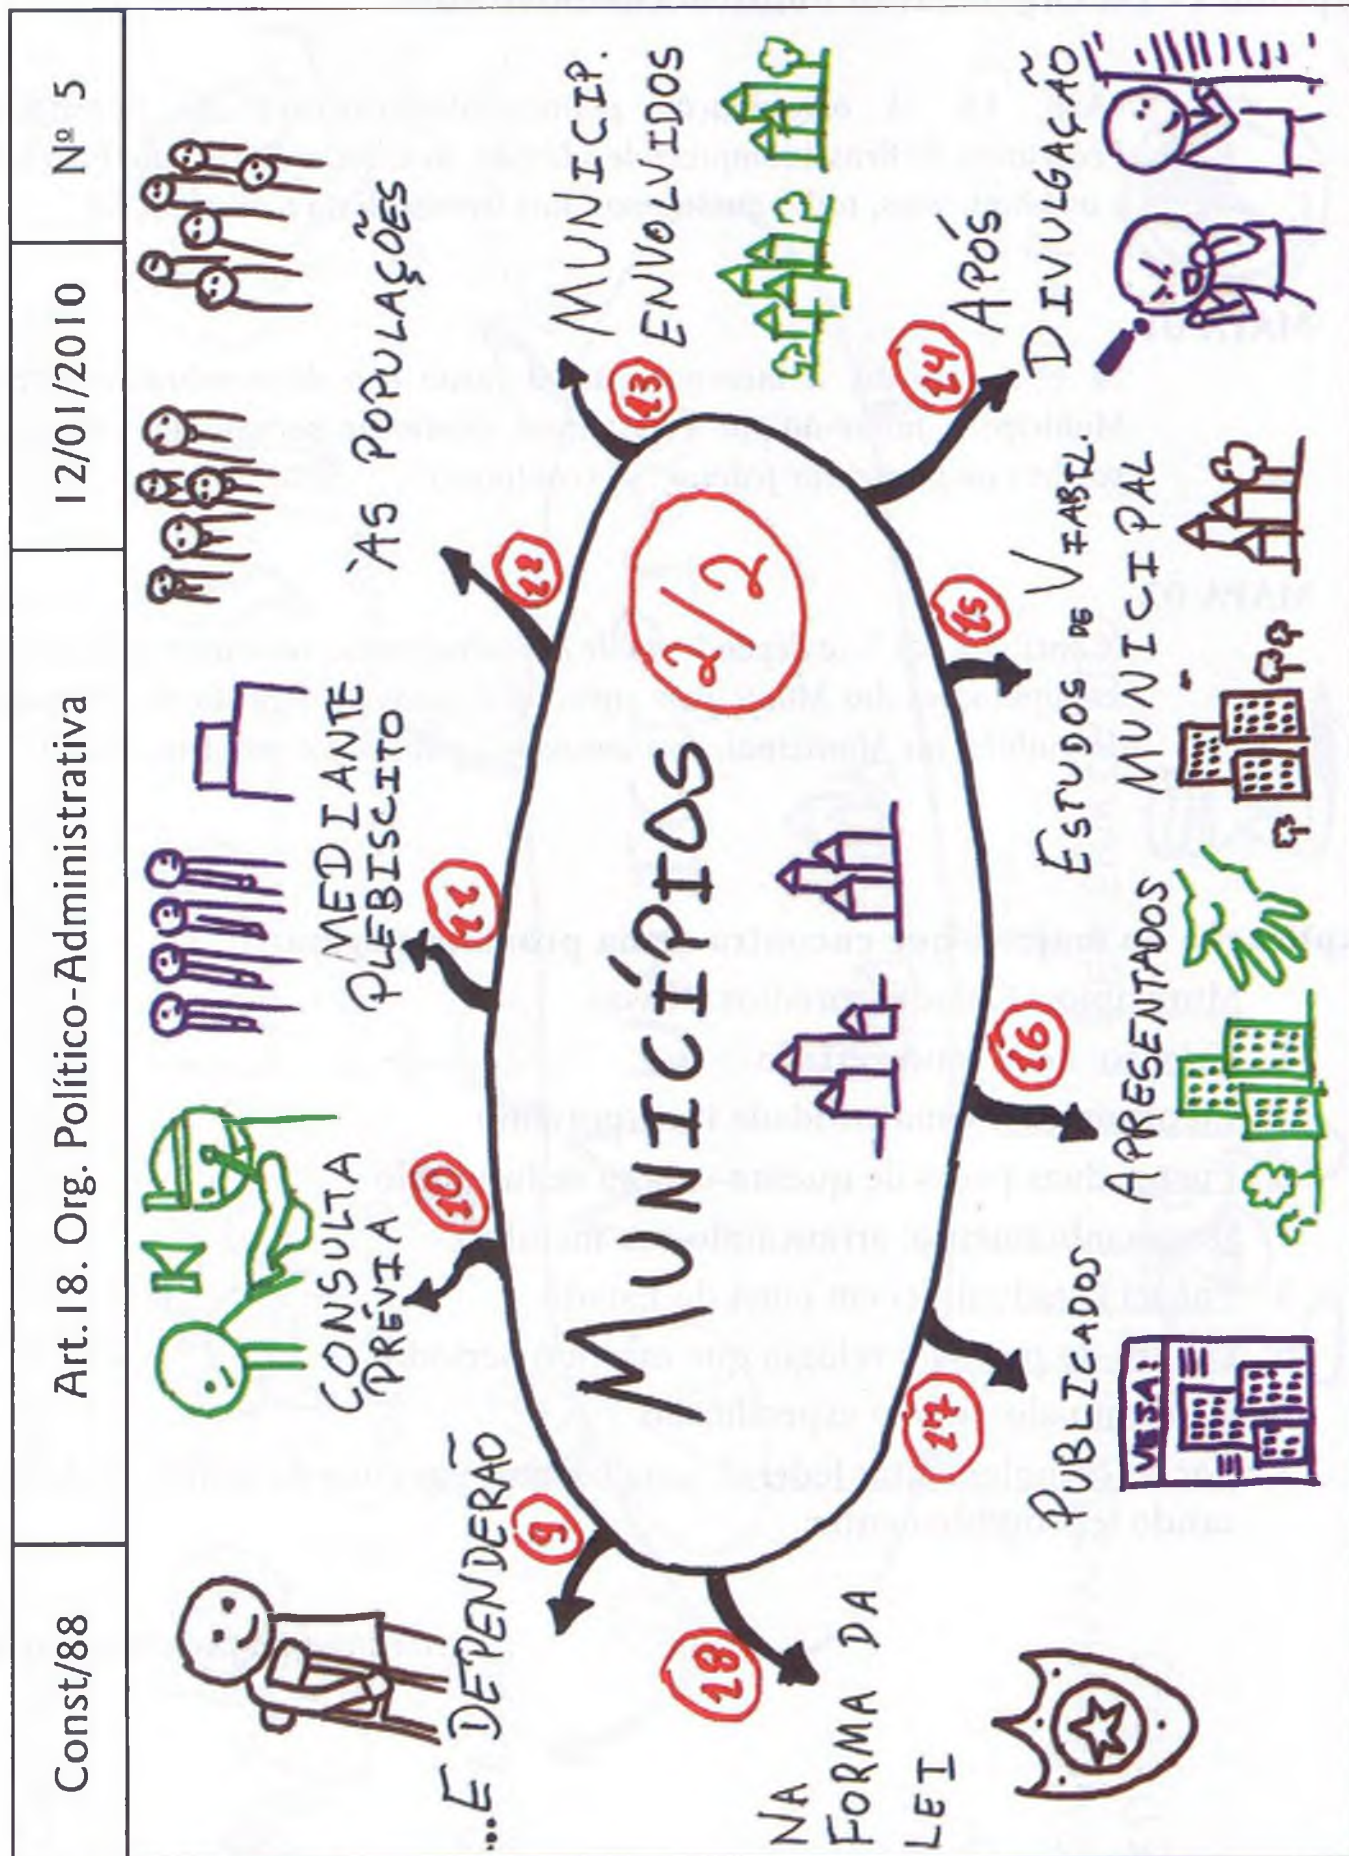 Const/88
Art.18. Org. Político-Administrativa
12/01/2010
Nº 5
MUNICÍPIOS
2/2
9
...E DEPENDERÃO
10
CONSULTA
PRÉVIA
11
MEDIANTE
PLEBISCITO
12
ÀS POPULAÇÕES
13
MUNICIP.
ENVOLVIDOS
14
APÓS
DIVULGAÇÃO
15
ESTUDOS DE VIABIL.
MUNICIPAL
16
APRESENTADOS
17
PUBLICADOS
VEJA:
18
NA
FORMA DA
LEI